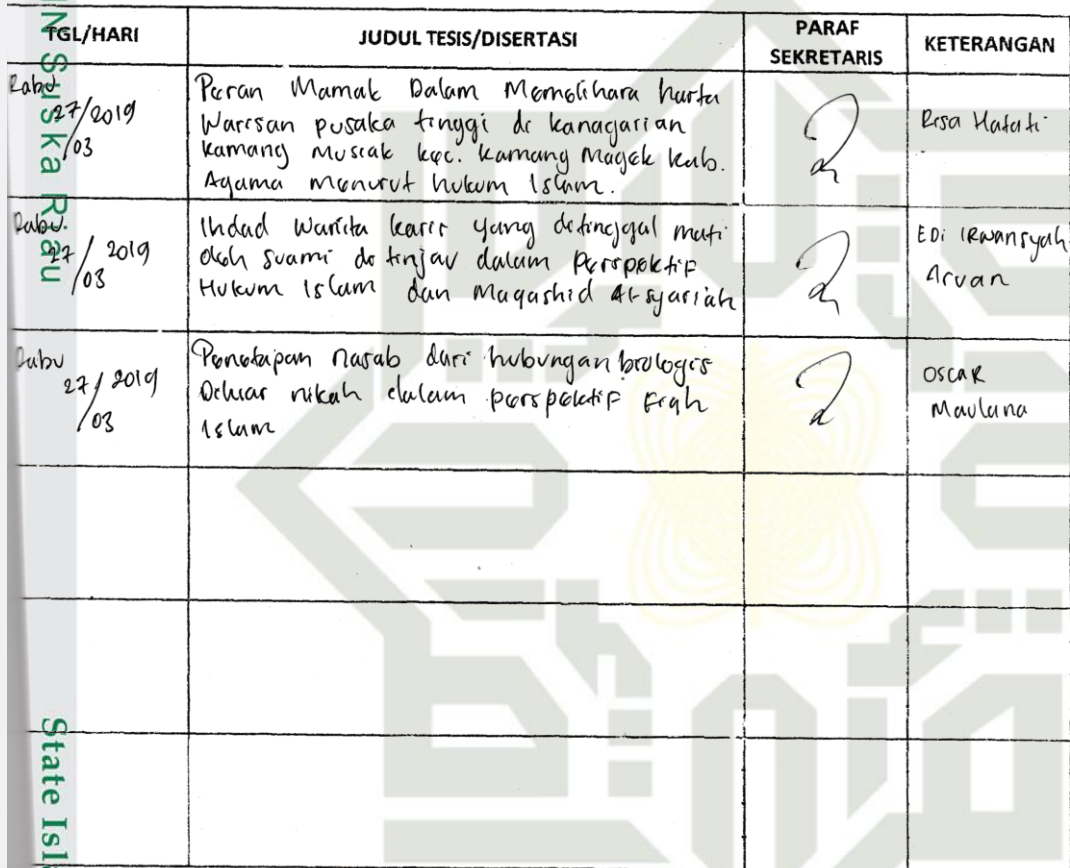 TGL/HARI JUDUL TESIS/DISERTASI PARAF SEKRETARIS KETERANGAN
Rabu
27/2019
/03
Peran Mamak Dalam Memelihara harta
Warisan pusaka tinggi di kanagarian
kamang Musiak kec. kamang Magek kab.
Agama menurut hukum Islam.
Risa Hafati
Rabu
27/2019
/03
Ihdad Wanita karir yang ditinggal mati
oleh suami di tinjau dalam Perspektif
Hukum Islam dan Maqashid Al-syariah
EDi IRWANSYAh
Arvan
Rabu
27/2019
/03
Penetapan nasab dari hubungan biologis
Diluar nikah dalam perspektif Fiqh
Islam
OSCAR
Maulana
N Suska Riau
State Isl